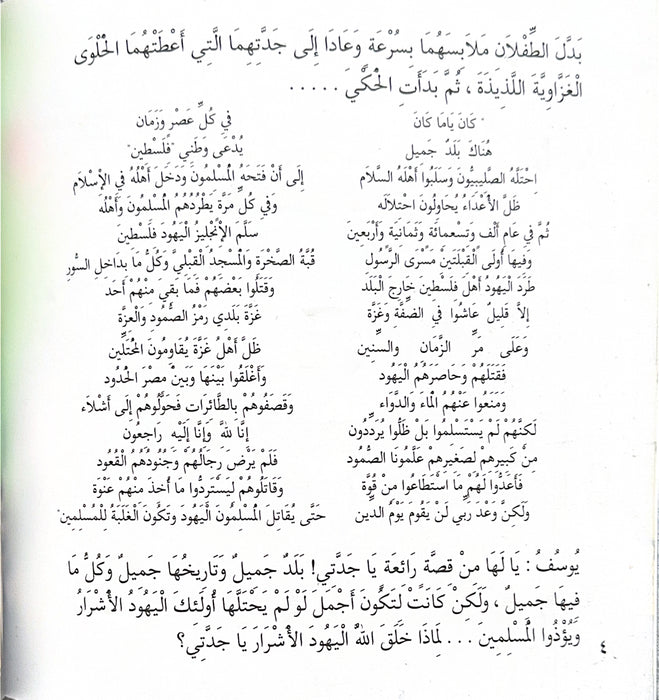 بَدَّلَ الطِّفْلَانِ مَلَابِسَهُمَا بِسُرْعَةٍ وَعَادَا إِلَى جَدَّتِهِمَا الَّتِي أَعْطَتْهُمَا الْحَلْوَى
الْغَزَّاوِيَّةَ اللَّذِيذَةَ ، ثُمَّ بَدَأَتِ الْحَكْيَ .....
" كَانَ يَامَا كَانَ فِي كُلِّ عَصْرٍ وَزَمَان
هُنَاكَ بَلَدٌ جَمِيل يُدْعَى وَطَنِي "فَلَسْطِين"
اِحْتَلَّهُ الصَّلِيبِيُّونَ وَسَلَبُوا أَهْلَهُ السَّلَام إِلَى أَنْ فَتَحَهُ الْمُسْلِمُونَ وَدَخَلَ أَهْلُهُ فِي الْإِسْلَام
ظَلَّ الْأَعْدَاءُ يُحَاوِلُونَ احْتِلَالَه وَفِي كُلِّ مَرَّةٍ يَطْرُدُهُمُ الْمُسْلِمُونَ وَأَهْلُه
ثُمَّ فِي عَامِ أَلْفٍ وَتِسْعِمِائَةٍ وَثَمَانِيَةٍ وَأَرْبَعِينَ سَلَّمَ الْإِنْجْلِيزُ الْيَهُودَ فَلَسْطِينَ
وَفِيهَا أُولَى الْقِبْلَتَيْنِ مَسْرَى الرَّسُول قُبَّةُ الصَّخْرَةِ وَالْمَسْجِدُ الْقِبْلِيُّ وَكُلُّ مَا بِدَاخِلِ السُّورِ
طَرَدَ الْيَهُودُ أَهْلَ فَلَسْطِينَ خَارِجَ الْبَلَد وَقَتَلُوا بَعْضَهُمْ فَمَا بَقِيَ مِنْهُمْ أَحَد
إِلَّا قَلِيلٌ عَاشُوا فِي الضِّفَّةِ وَغَزَّة غَزَّةُ بَلَدِي رَمْزُ الصُّمُودِ وَالْعِزَّة
وَعَلَى مَرِّ الزَّمَانِ وَالسِّنِين ظَلَّ أَهْلُ غَزَّةَ يُقَاوِمُونَ الْمُحْتَلِّين
فَقَتَلَهُمْ وَحَاصَرَهُمُ الْيَهُود وَأَغْلَقُوا بَيْنَهَا وَبَيْنَ مِصْرَ الْحُدُود
وَمَنَعُوا عَنْهُمُ الْمَاءَ وَالدَّوَاء وَقَصَفُوهُمْ بِالطَّائِرَاتِ فَحَوَّلُوهُمْ إِلَى أَشْلَاء
لَكِنَّهُمْ لَمْ يَسْتَسْلِمُوا بَلْ ظَلُّوا يُرَدِّدُون إِنَّا لِلَّهِ وَإِنَّا إِلَيْهِ رَاجِعُون
مِنْ كَبِيرِهِمْ لِصَغِيرِهِمْ عَلَّمُونَا الصُّمُود فَلَمْ يَرْضَ رِجَالُهُمْ وَجُنُودُهُمُ الْقُعُود
فَأَعَدُّوا لَهُمْ مَا اسْتَطَاعُوا مِنْ قُوَّة وَقَاتَلُوهُمْ لِيَسْتَرِدُّوا مَا أُخِذَ مِنْهُمْ عَنْوَة
وَلَكِنْ وَعْدُ رَبِّي لَنْ يَقُومَ يَوْمُ الدِّين حَتَّى يُقَاتِلَ الْمُسْلِمُونَ الْيَهُودَ وَتَكُونَ الْغَلَبَةُ لِلْمُسْلِمِين"
يُوسُفُ : يَا لَهَا مِنْ قِصَّةٍ رَائِعَةٍ يَا جَدَّتِي! بَلَدٌ جَمِيلٌ وَتَارِيخُهَا جَمِيلٌ وَكُلُّ مَا
فِيهَا جَمِيلٌ ، وَلَكِنْ كَانَتْ لِتَكُونَ أَجْمَلَ لَوْ لَمْ يَحْتَلَّهَا أُولَئِكَ الْيَهُودُ الْأَشْرَارُ
وَيُؤْذُوا الْمُسْلِمِينَ ... لِمَاذَا خَلَقَ اللهُ الْيَهُودَ الْأَشْرَارَ يَا جَدَّتِي؟
٤